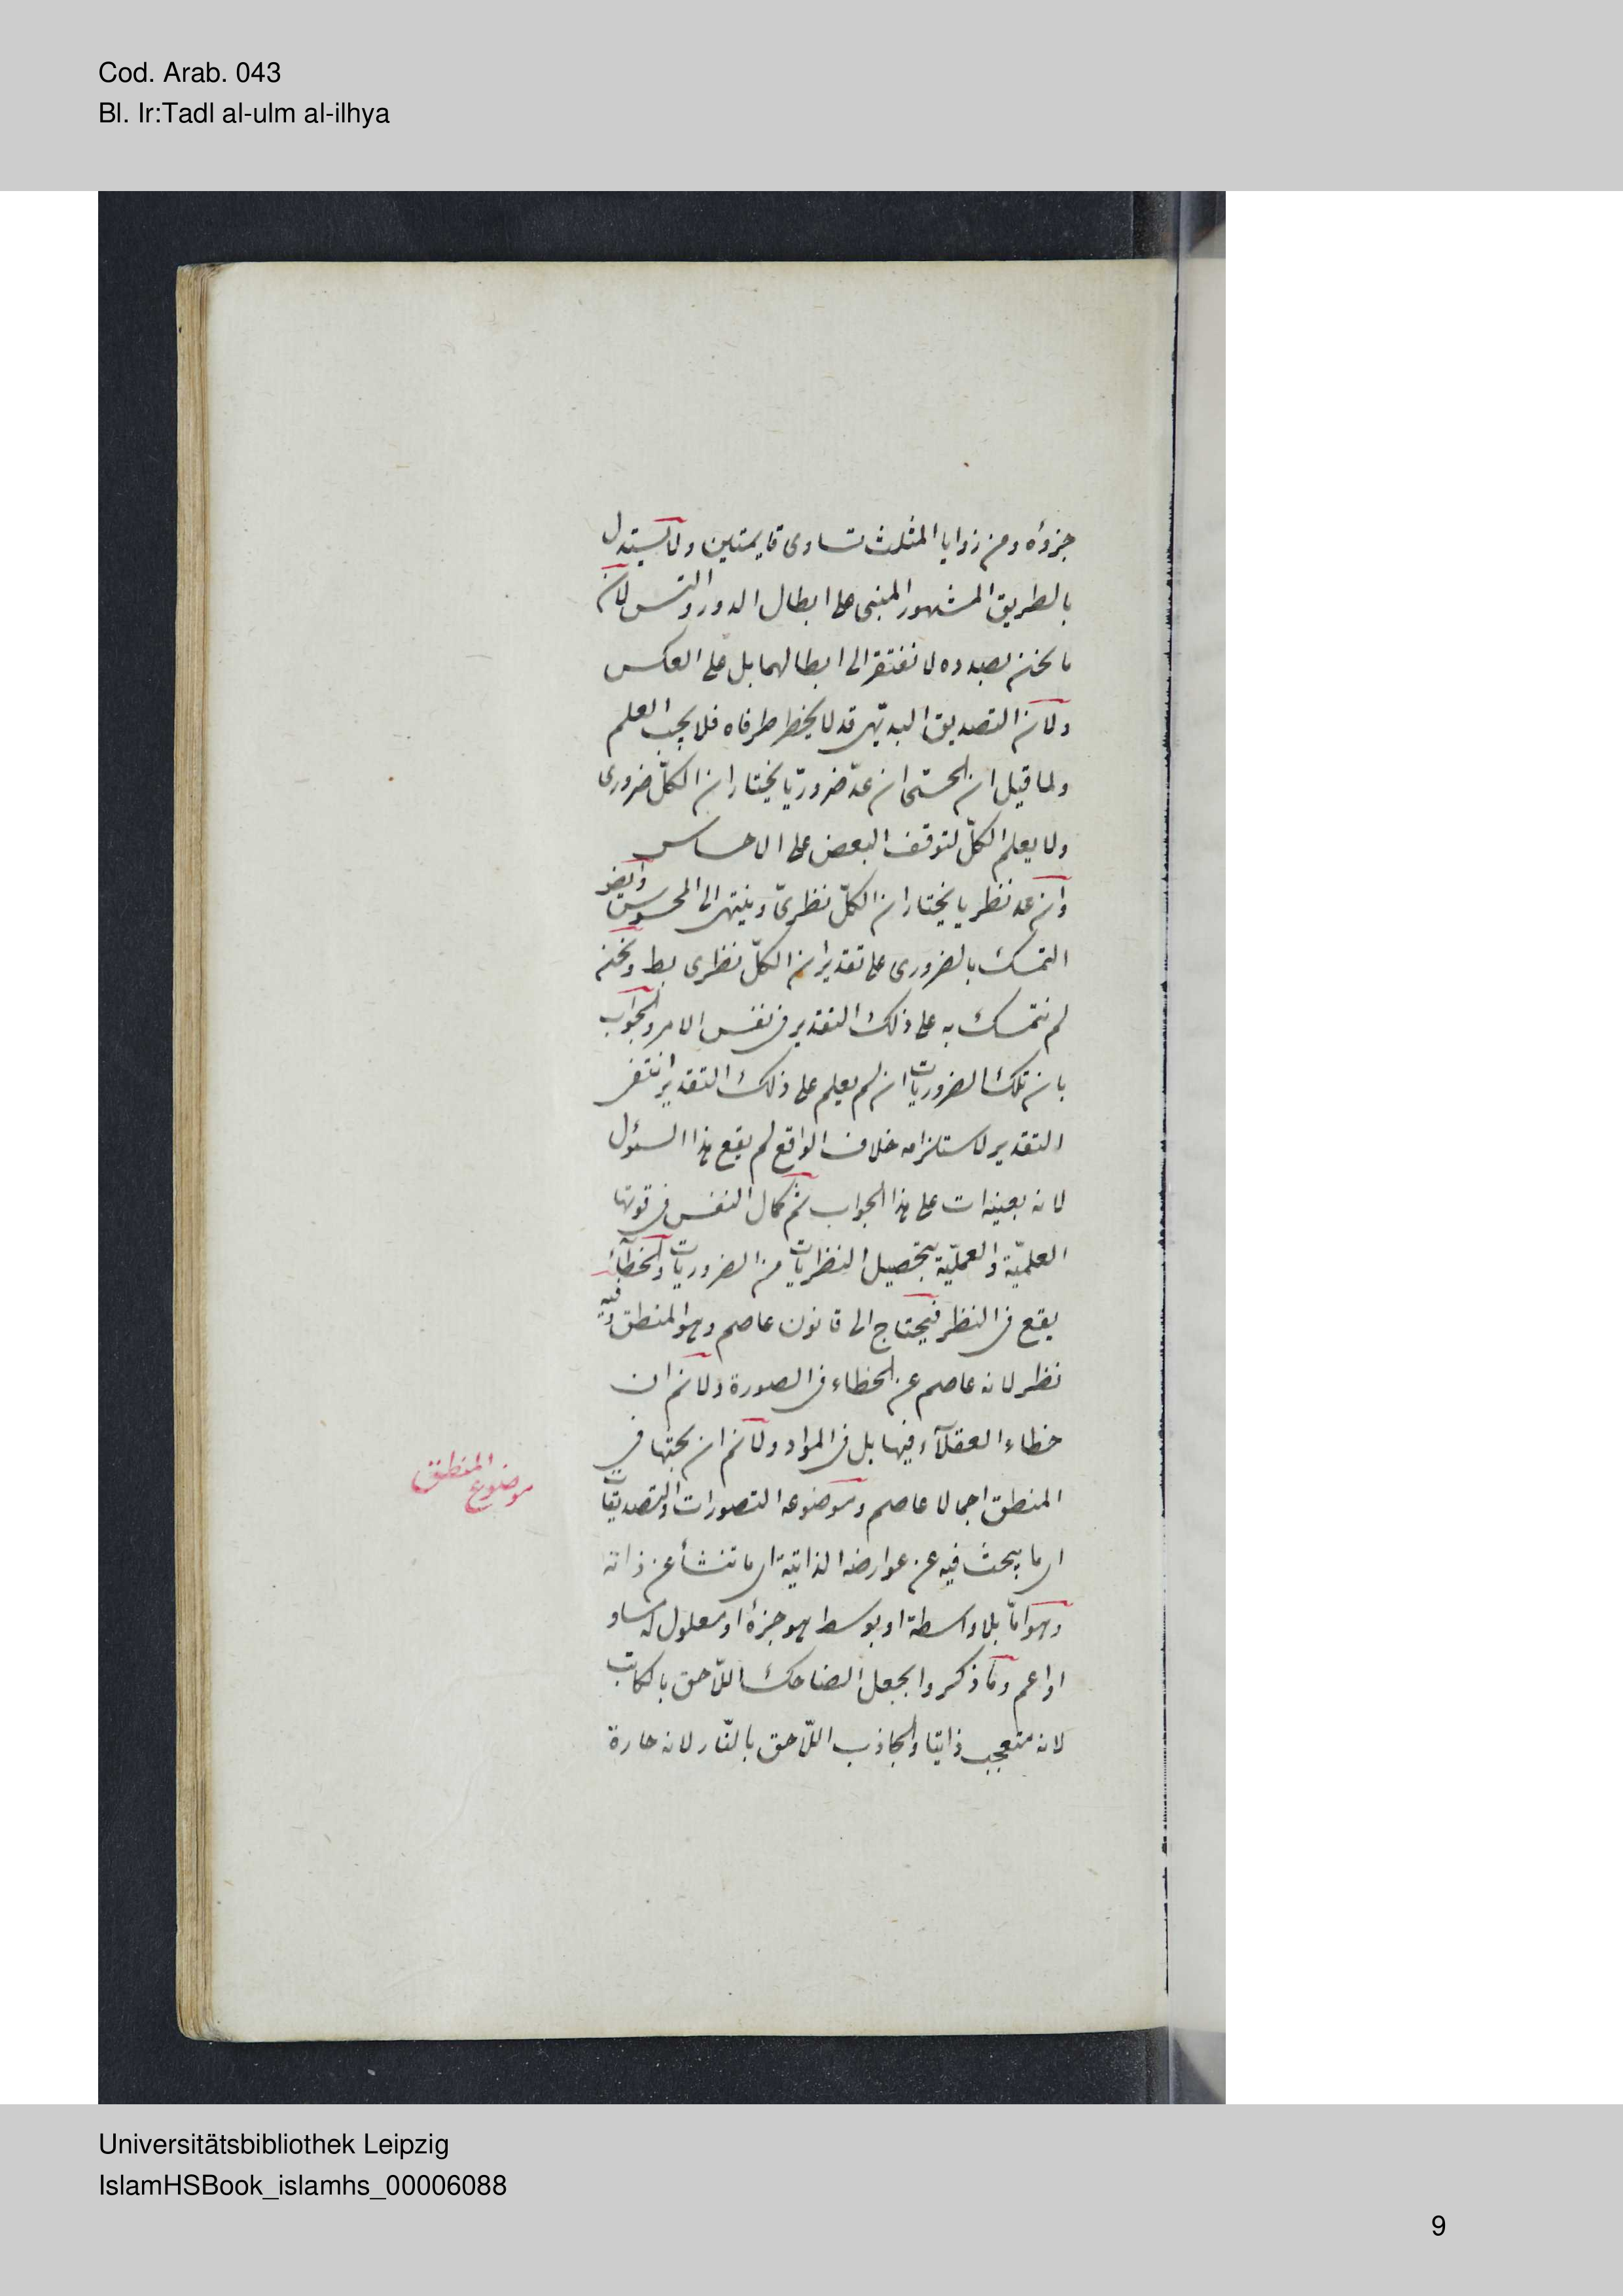 Cod. Arab. 043
Bl. Ir:Tadl al-ulm al-ilhya
جزؤه ومن زوايا المثلث تساوى قايمتين ولا يستدل
بالطريق المشهور المبنى على ابطال الدور والتس لان
ما نحن بصدده لا نفتقر الى ابطالهما بل على العكس
ولان التصديق البديهى قد لا يخطر طرفاه فلا يجب العلم
ولما قيل ان الحسى ان عد ضروريّا يختار ان الكلّ ضرورى
ولا يعلم الكلّ لتوقف البعض على الاحساس
وان عد نظريا يختار ان الكلّ نظرىّ وينتهى الى المحسوس وايضا
التمسك بالضرورى على تقدير ان الكلّ نظرى بط ونحن
لم نتمسك به على ذلك التقدير فى نفس الامر والجواب
بان تلك الضروريات ان لم يعلم على ذلك التقدير انتفى
التقدير لاستلزامه خلاف الواقع لم يقع هذا السئول
لانه بعينه ات على هذا الجواب ثم كمال النفس فى قوتها
العلميّة والعمليّة بتحصيل النظريات من الضروريات والخطآء
يقع فى النظر فيحتاج الى قانون عاصم وهو المنطق وفيه
نظر لانه عاصم عن الخطاء فى الصورة ولانم ان
خطاء العقلآء فيها بل فى المواد ولانم ان بحثها فى
المنطق اجمالا عاصم وموضوعه التصورات والتصديقات
موضوع المنطق
اى ما يبحث فيه عن عوارضه الذاتية اى ما تنشأ عن ذاته
وهو امّا بلا واسطة او بوسط هو جزءه او معلول له مساو
او اعم وما ذكروا بجعل الضاحك اللّاحق بالكاتب
لانه متعجب ذاتيا والجاذب اللّاحق بالنّار لانه حارة
Universitätsbibliothek Leipzig
IslamHSBook_islamhs_00006088
9